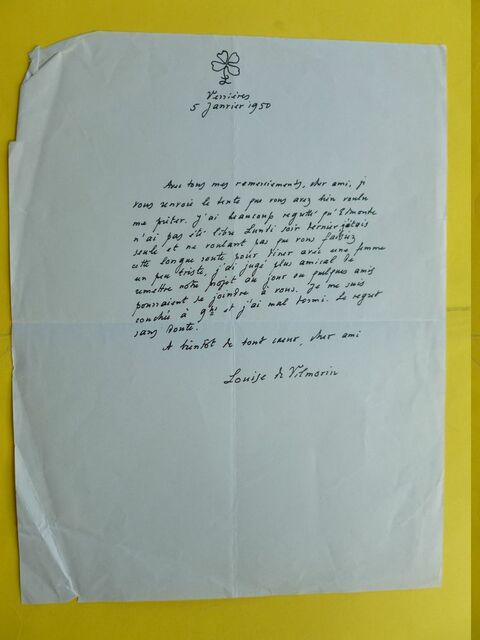 L
Verrières
5 Janvier 1950
Avec tous mes remerciements, cher ami, je
vous renvoie le texte que vous avez bien voulu
me prêter. J'ai beaucoup regretté qu'
n'ai pas été libre Lundi soir dernier j'étais
seule et ne voulant pas que vous fassiez
cette longue route pour dîner avec une femme
un peu triste, j'ai jugé plus amical de
remettre notre projet au jour où quelques amis
pourraient se joindre à vous. Je me suis
couchée à 9h et j'ai mal dormi. Le regret
sans doute.
A bientôt de tout coeur, cher ami
Louise de Vilmorin